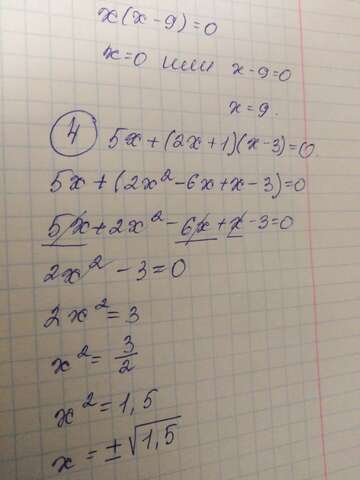 x(x-9)=0
x=0 или x-9=0
x=9.
4 5x+(2x+1)(x-3)=0
5x+(2x²-6x+x-3)=0
5x+2x²-6x+x-3=0
2x²-3=0
2x²=3
x²=3/2
x²=1,5
x=±√1,5